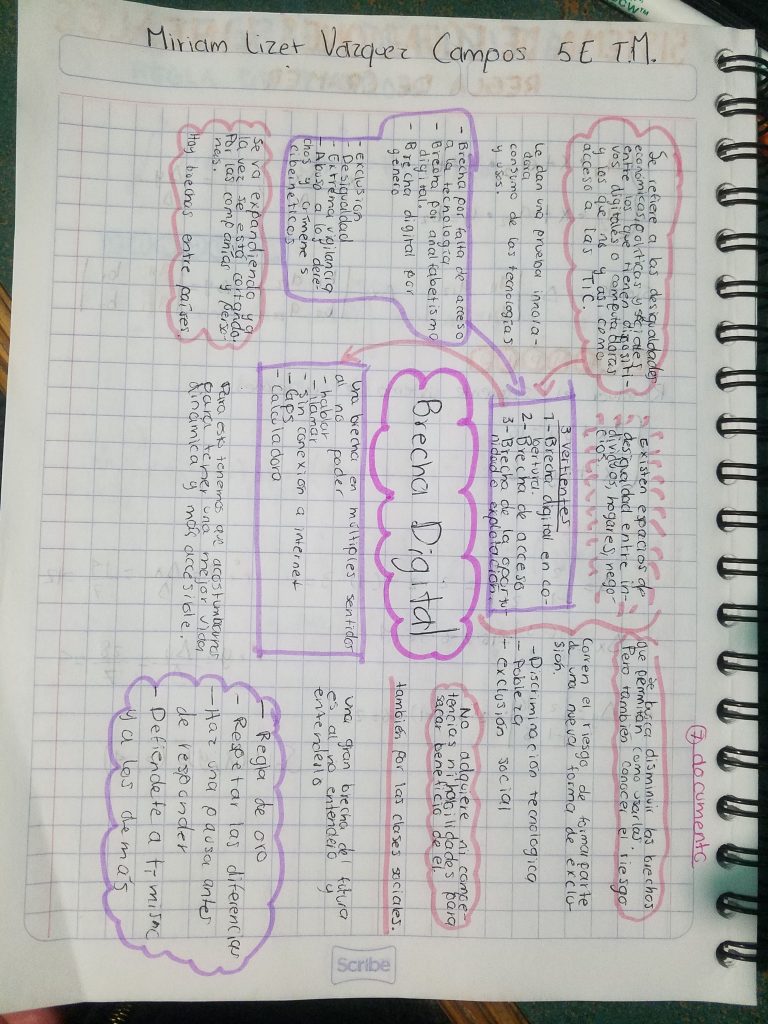 Miriam Lizet Vázquez Campos 5E T.M.
⑦ documenta
Se refiere a las desigualdades
economicas, politicas y sociales
entre los que tienen dispositi-
vos digitales o computadoras
y los que no y asi como
acceso a las TIC.
Le dan una prueba innova-
dora
consumo de las tecnologias
y usos.
- Brecha por falta de acceso
a la tecnologia
- Brecha por analfabetismo
digital.
- Brecha digital por
género
- exclusion
- Desigualdad
- Extrema vigilancia
- Abuso a los dere-
chos y crimenes
ciberneticos
Se va expandiendo y a
la vez se está cortando.
Por las compañias y perso-
nas.
Hay brechas entre paises.
- Existen espacios de
desigualdad entre in-
dividuos, hogares, nego-
cios
3 vertientes
1- Brecha digital en co-
bertura.
2- Brecha de acceso
3- Brecha de la oportu-
nidad o explotación.
Brecha Digital
Una brecha en múltiples sentidos
al no poder
- hablar
- llamar
- sin conexion a internet
- Gps
- calculadora
Para esto tenemos que acostumbrarnos
para tener una mejor vida
dinámica y más accesible.
Se busca disminuir las brechas
que permitan como usarlas.
Pero también conocer el riesgo
Corren el riesgo de formar parte
de una nueva forma de exclu-
sión.
- Discriminación tecnologica
- Pobleza
- exclusión social
No adquiere ni compe-
tencias ni habilidades para
sacar beneficio de el.
también por las clases sociales.
una gran brecha del futuro
es al no entender y
entenderlo
- Regla de oro
- Respetar las diferencias
- Haz una pausa antes
de responder
- Defiendete a ti mismo
y a los demás
Scribe